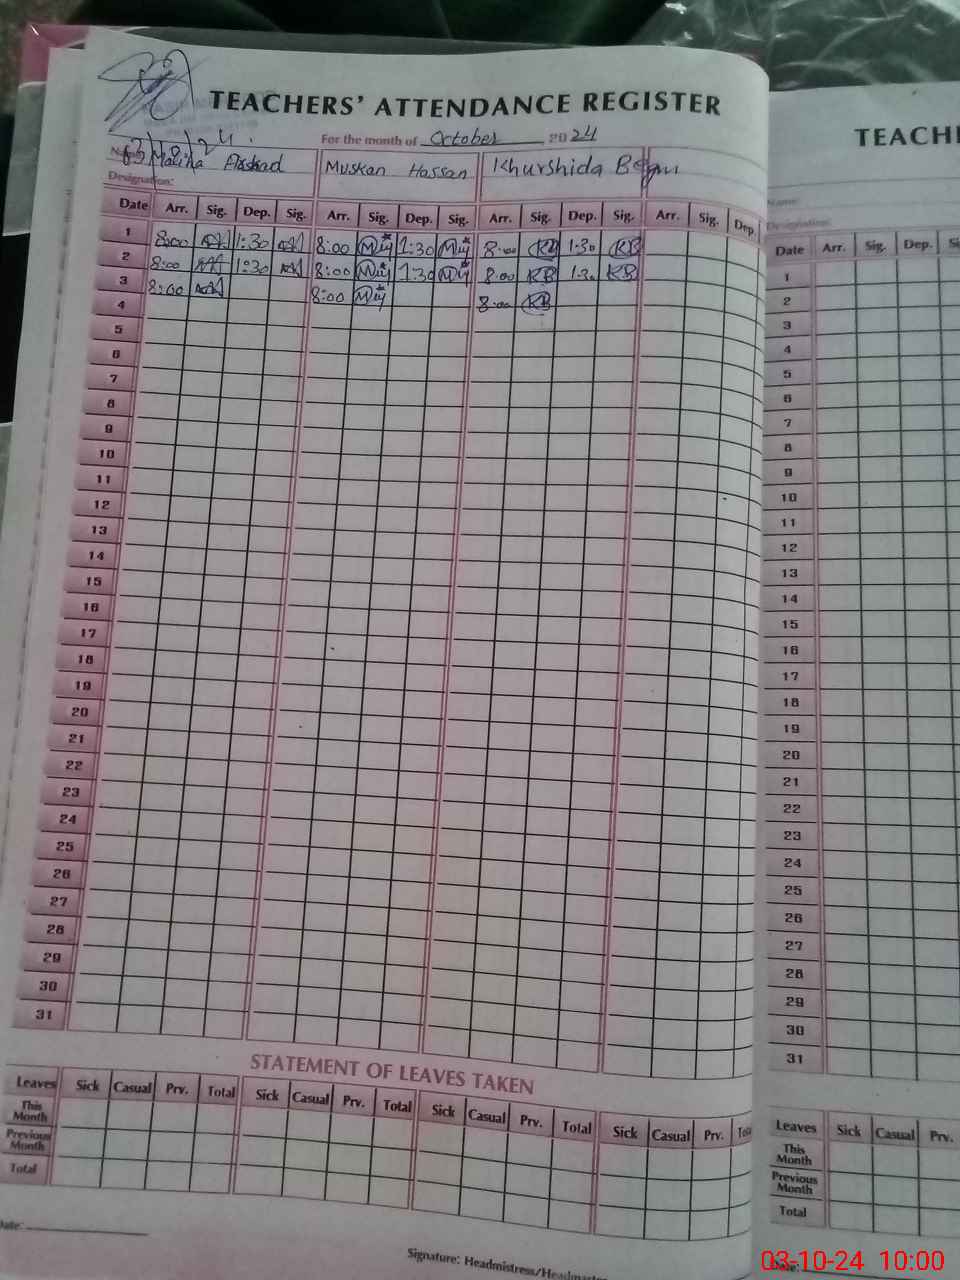 TEACHERS' ATTENDANCE REGISTER
For the month of October 2024
3/10/24.
Name: Maliha Arshad Muskan Hassan Khurshida Begum
Designation:
Date Arr. Sig. Dep. Sig. Arr. Sig. Dep. Sig. Arr. Sig. Dep. Sig. Arr. Sig. Dep.
1 8:00 1:30 8:00 1:30 8:00 KB 1:30 KB
2 8:00 1:30 8:00 1:30 8:00 KB 1:30 KB
3 8:00 8:00 8:00 KB
4
5
6
7
8
9
10
11
12
13
14
15
16
17
18
19
20
21
22
23
24
25
26
27
28
29
30
31
STATEMENT OF LEAVES TAKEN
Leaves Sick Casual Prv. Total Sick Casual Prv. Total Sick Casual Prv. Total Sick Casual Prv.
This Month
Previous Month
Total
Date:
Signature: Headmistress/Headmaster
TEACH
Name:
Designation:
Date Arr. Sig. Dep.
1
2
3
4
5
6
7
8
9
10
11
12
13
14
15
16
17
18
19
20
21
22
23
24
25
26
27
28
29
30
31
Leaves Sick Casual Prv.
This Month
Previous Month
Total
Date:
03-10-24 10:00